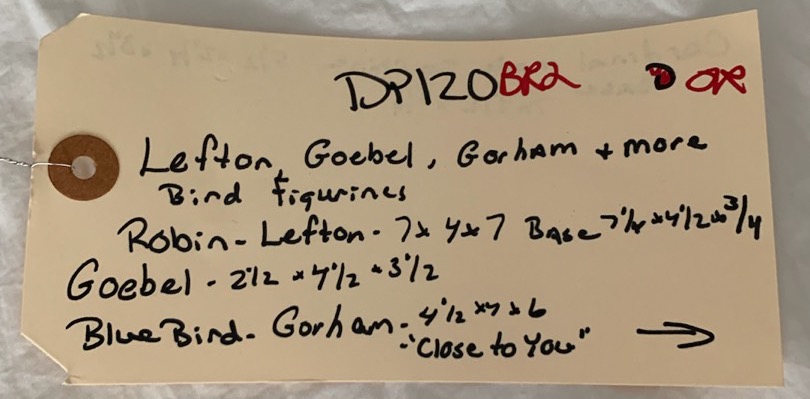 DP120BR2 DR
Lefton, Goebel, Gorham + more
Bird figurines
Robin - Lefton - 7 x 4 x 7 Base 7 1/4 x 4 1/2 x 3/4
Goebel - 2 1/2 x 4 1/2 x 3 1/2
BlueBird - Gorham - 4 1/2 x 4 x 6
"Close to You" →